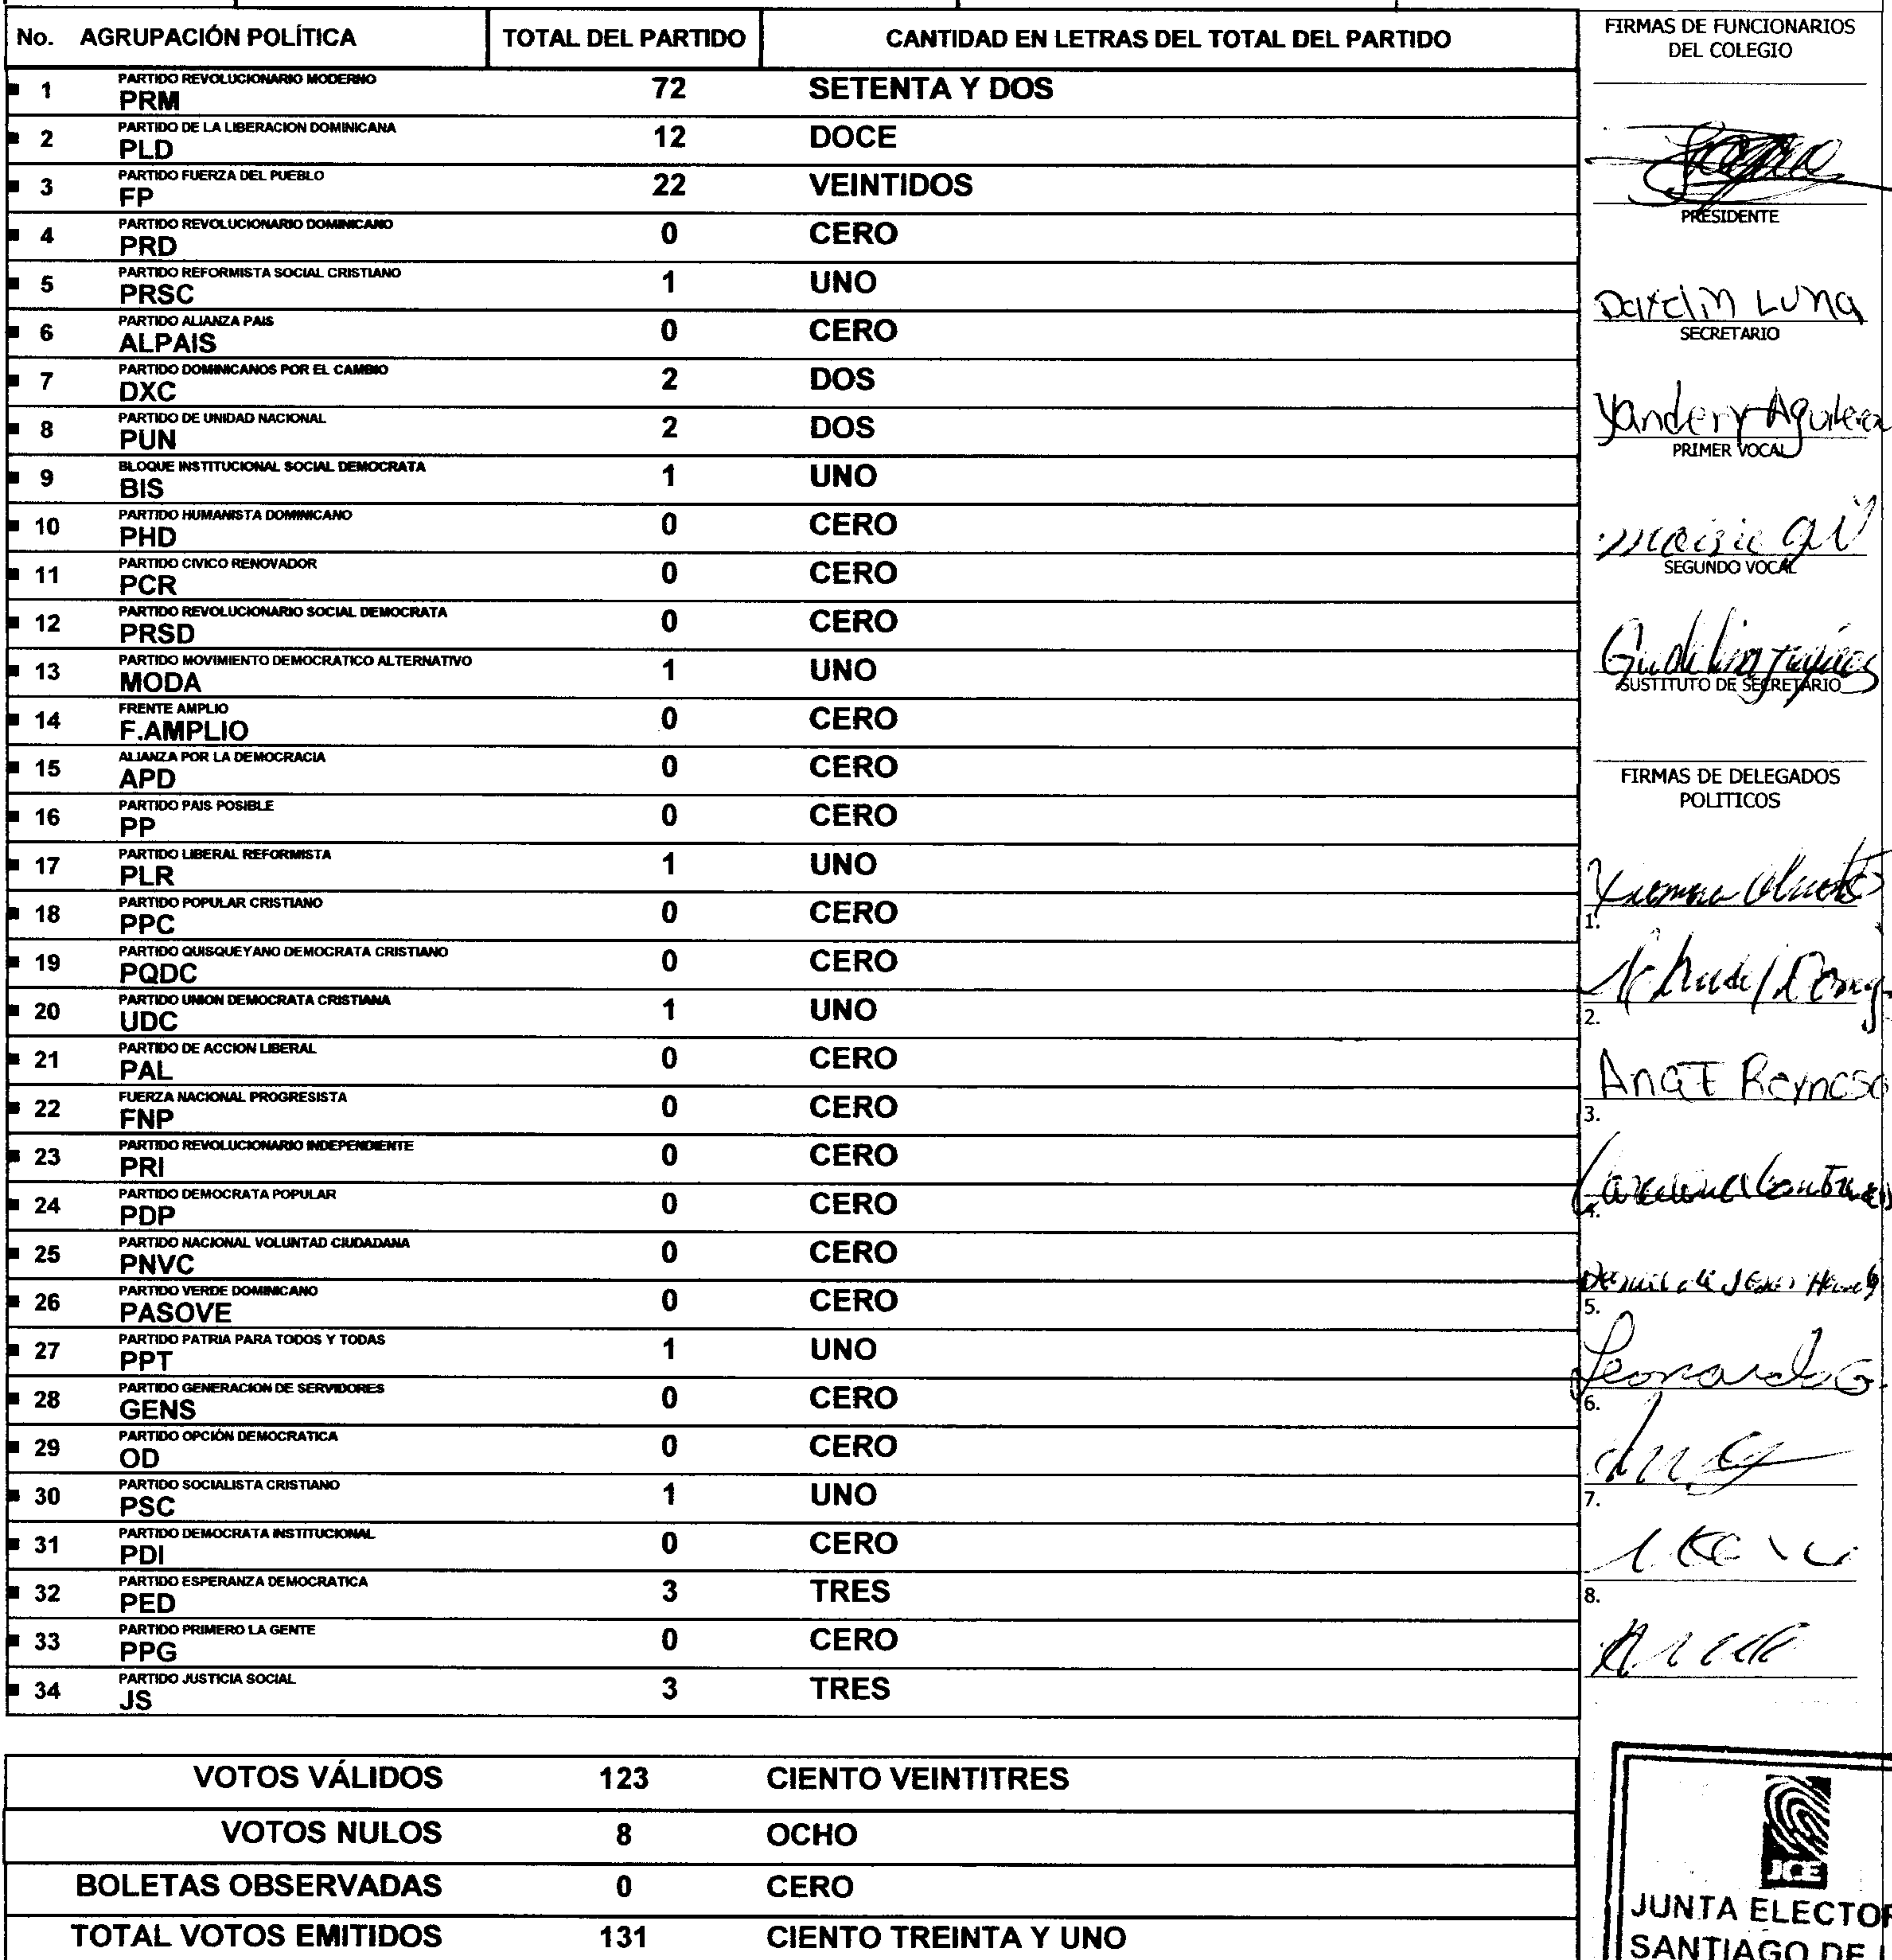 No. AGRUPACIÓN POLÍTICA TOTAL DEL PARTIDO CANTIDAD EN LETRAS DEL TOTAL DEL PARTIDO
PARTIDO REVOLUCIONARIO MODERNO
1 PRM 72 SETENTA Y DOS
PARTIDO DE LA LIBERACION DOMINICANA
2 PLD 12 DOCE
PARTIDO FUERZA DEL PUEBLO
3 FP 22 VEINTIDOS
PARTIDO REVOLUCIONARIO DOMINICANO
4 PRD 0 CERO
PARTIDO REFORMISTA SOCIAL CRISTIANO
5 PRSC 1 UNO
PARTIDO ALIANZA PAIS
6 ALPAIS 0 CERO
PARTIDO DOMINICANOS POR EL CAMBIO
7 DXC 2 DOS
PARTIDO DE UNIDAD NACIONAL
8 PUN 2 DOS
BLOQUE INSTITUCIONAL SOCIAL DEMOCRATA
9 BIS 1 UNO
PARTIDO HUMANISTA DOMINICANO
10 PHD 0 CERO
PARTIDO CIVICO RENOVADOR
11 PCR 0 CERO
PARTIDO REVOLUCIONARIO SOCIAL DEMOCRATA
12 PRSD 0 CERO
PARTIDO MOVIMIENTO DEMOCRATICO ALTERNATIVO
13 MODA 1 UNO
FRENTE AMPLIO
14 F.AMPLIO 0 CERO
ALIANZA POR LA DEMOCRACIA
15 APD 0 CERO
PARTIDO PAIS POSIBLE
16 PP 0 CERO
PARTIDO LIBERAL REFORMISTA
17 PLR 1 UNO
PARTIDO POPULAR CRISTIANO
18 PPC 0 CERO
PARTIDO QUISQUEYANO DEMOCRATA CRISTIANO
19 PQDC 0 CERO
PARTIDO UNION DEMOCRATA CRISTIANA
20 UDC 1 UNO
PARTIDO DE ACCION LIBERAL
21 PAL 0 CERO
FUERZA NACIONAL PROGRESISTA
22 FNP 0 CERO
PARTIDO REVOLUCIONARIO INDEPENDIENTE
23 PRI 0 CERO
PARTIDO DEMOCRATA POPULAR
24 PDP 0 CERO
PARTIDO NACIONAL VOLUNTAD CIUDADANA
25 PNVC 0 CERO
PARTIDO VERDE DOMINICANO
26 PASOVE 0 CERO
PARTIDO PATRIA PARA TODOS Y TODAS
27 PPT 1 UNO
PARTIDO GENERACION DE SERVIDORES
28 GENS 0 CERO
PARTIDO OPCIÓN DEMOCRATICA
29 OD 0 CERO
PARTIDO SOCIALISTA CRISTIANO
30 PSC 1 UNO
PARTIDO DEMOCRATA INSTITUCIONAL
31 PDI 0 CERO
PARTIDO ESPERANZA DEMOCRATICA
32 PED 3 TRES
PARTIDO PRIMERO LA GENTE
33 PPG 0 CERO
PARTIDO JUSTICIA SOCIAL
34 JS 3 TRES
VOTOS VÁLIDOS 123 CIENTO VEINTITRES
VOTOS NULOS 8 OCHO
BOLETAS OBSERVADAS 0 CERO
TOTAL VOTOS EMITIDOS 131 CIENTO TREINTA Y UNO
FIRMAS DE FUNCIONARIOS
DEL COLEGIO
PRESIDENTE
Luna
SECRETARIO
PRIMER VOCAL
SEGUNDO VOCAL
SUSTITUTO DE SECRETARIO
FIRMAS DE DELEGADOS
POLITICOS
1.
2.
3.
4.
5.
Leonardo G.
6.
7.
8.
JCE
JUNTA ELECTOR
SANTIAGO DE